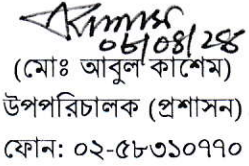 ০৮/০৪/২৪
(মোঃ আবুল কাশেম)
উপপরিচালক (প্রশাসন)
ফোন: ০২-৫৮৩১০৭৭০